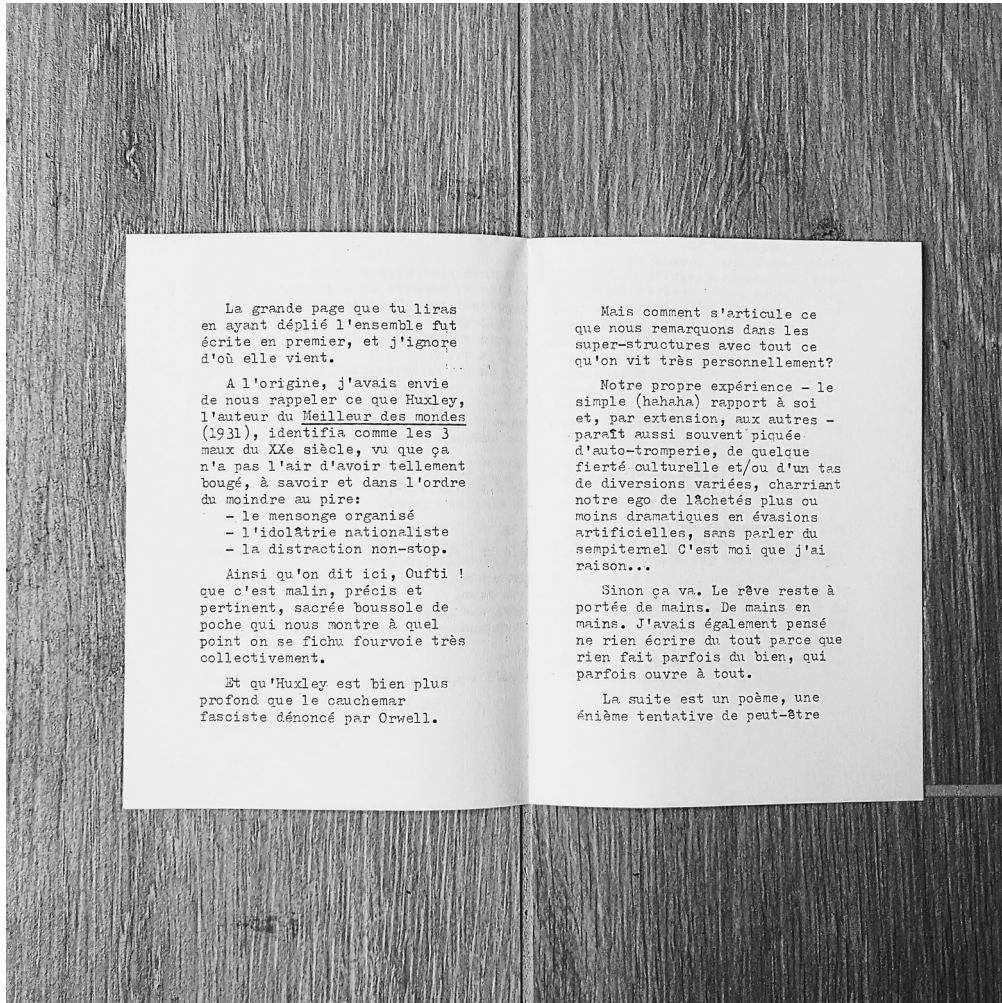 La grande page que tu liras
en ayant déplié l'ensemble fut
écrite en premier, et j'ignore
d'où elle vient.
A l'origine, j'avais envie
de nous rappeler ce que Huxley,
l'auteur du Meilleur des mondes
(1931), identifia comme les 3
maux du XXe siècle, vu que ça
n'a pas l'air d'avoir tellement
bougé, à savoir et dans l'ordre
du moindre au pire:
- le mensonge organisé
- l'idolâtrie nationaliste
- la distraction non-stop.
Ainsi qu'on dit ici, Oufti !
que c'est malin, précis et
pertinent, sacrée boussole de
poche qui nous montre à quel
point on se fichu fourvoie très
collectivement.
Et qu'Huxley est bien plus
profond que le cauchemar
fasciste dénoncé par Orwell.
Mais comment s'articule ce
que nous remarquons dans les
super-structures avec tout ce
qu'on vit très personnellement?
Notre propre expérience - le
simple (hahaha) rapport à soi
et, par extension, aux autres -
paraît aussi souvent piquée
d'auto-tromperie, de quelque
fierté culturelle et/ou d'un tas
de diversions variées, charriant
notre ego de lâchetés plus ou
moins dramatiques en évasions
artificielles, sans parler du
sempiternel C'est moi que j'ai
raison...
Sinon ça va. Le rêve reste à
portée de mains. De mains en
mains. J'avais également pensé
ne rien écrire du tout parce que
rien fait parfois du bien, qui
parfois ouvre à tout.
La suite est un poème, une
énième tentative de peut-être